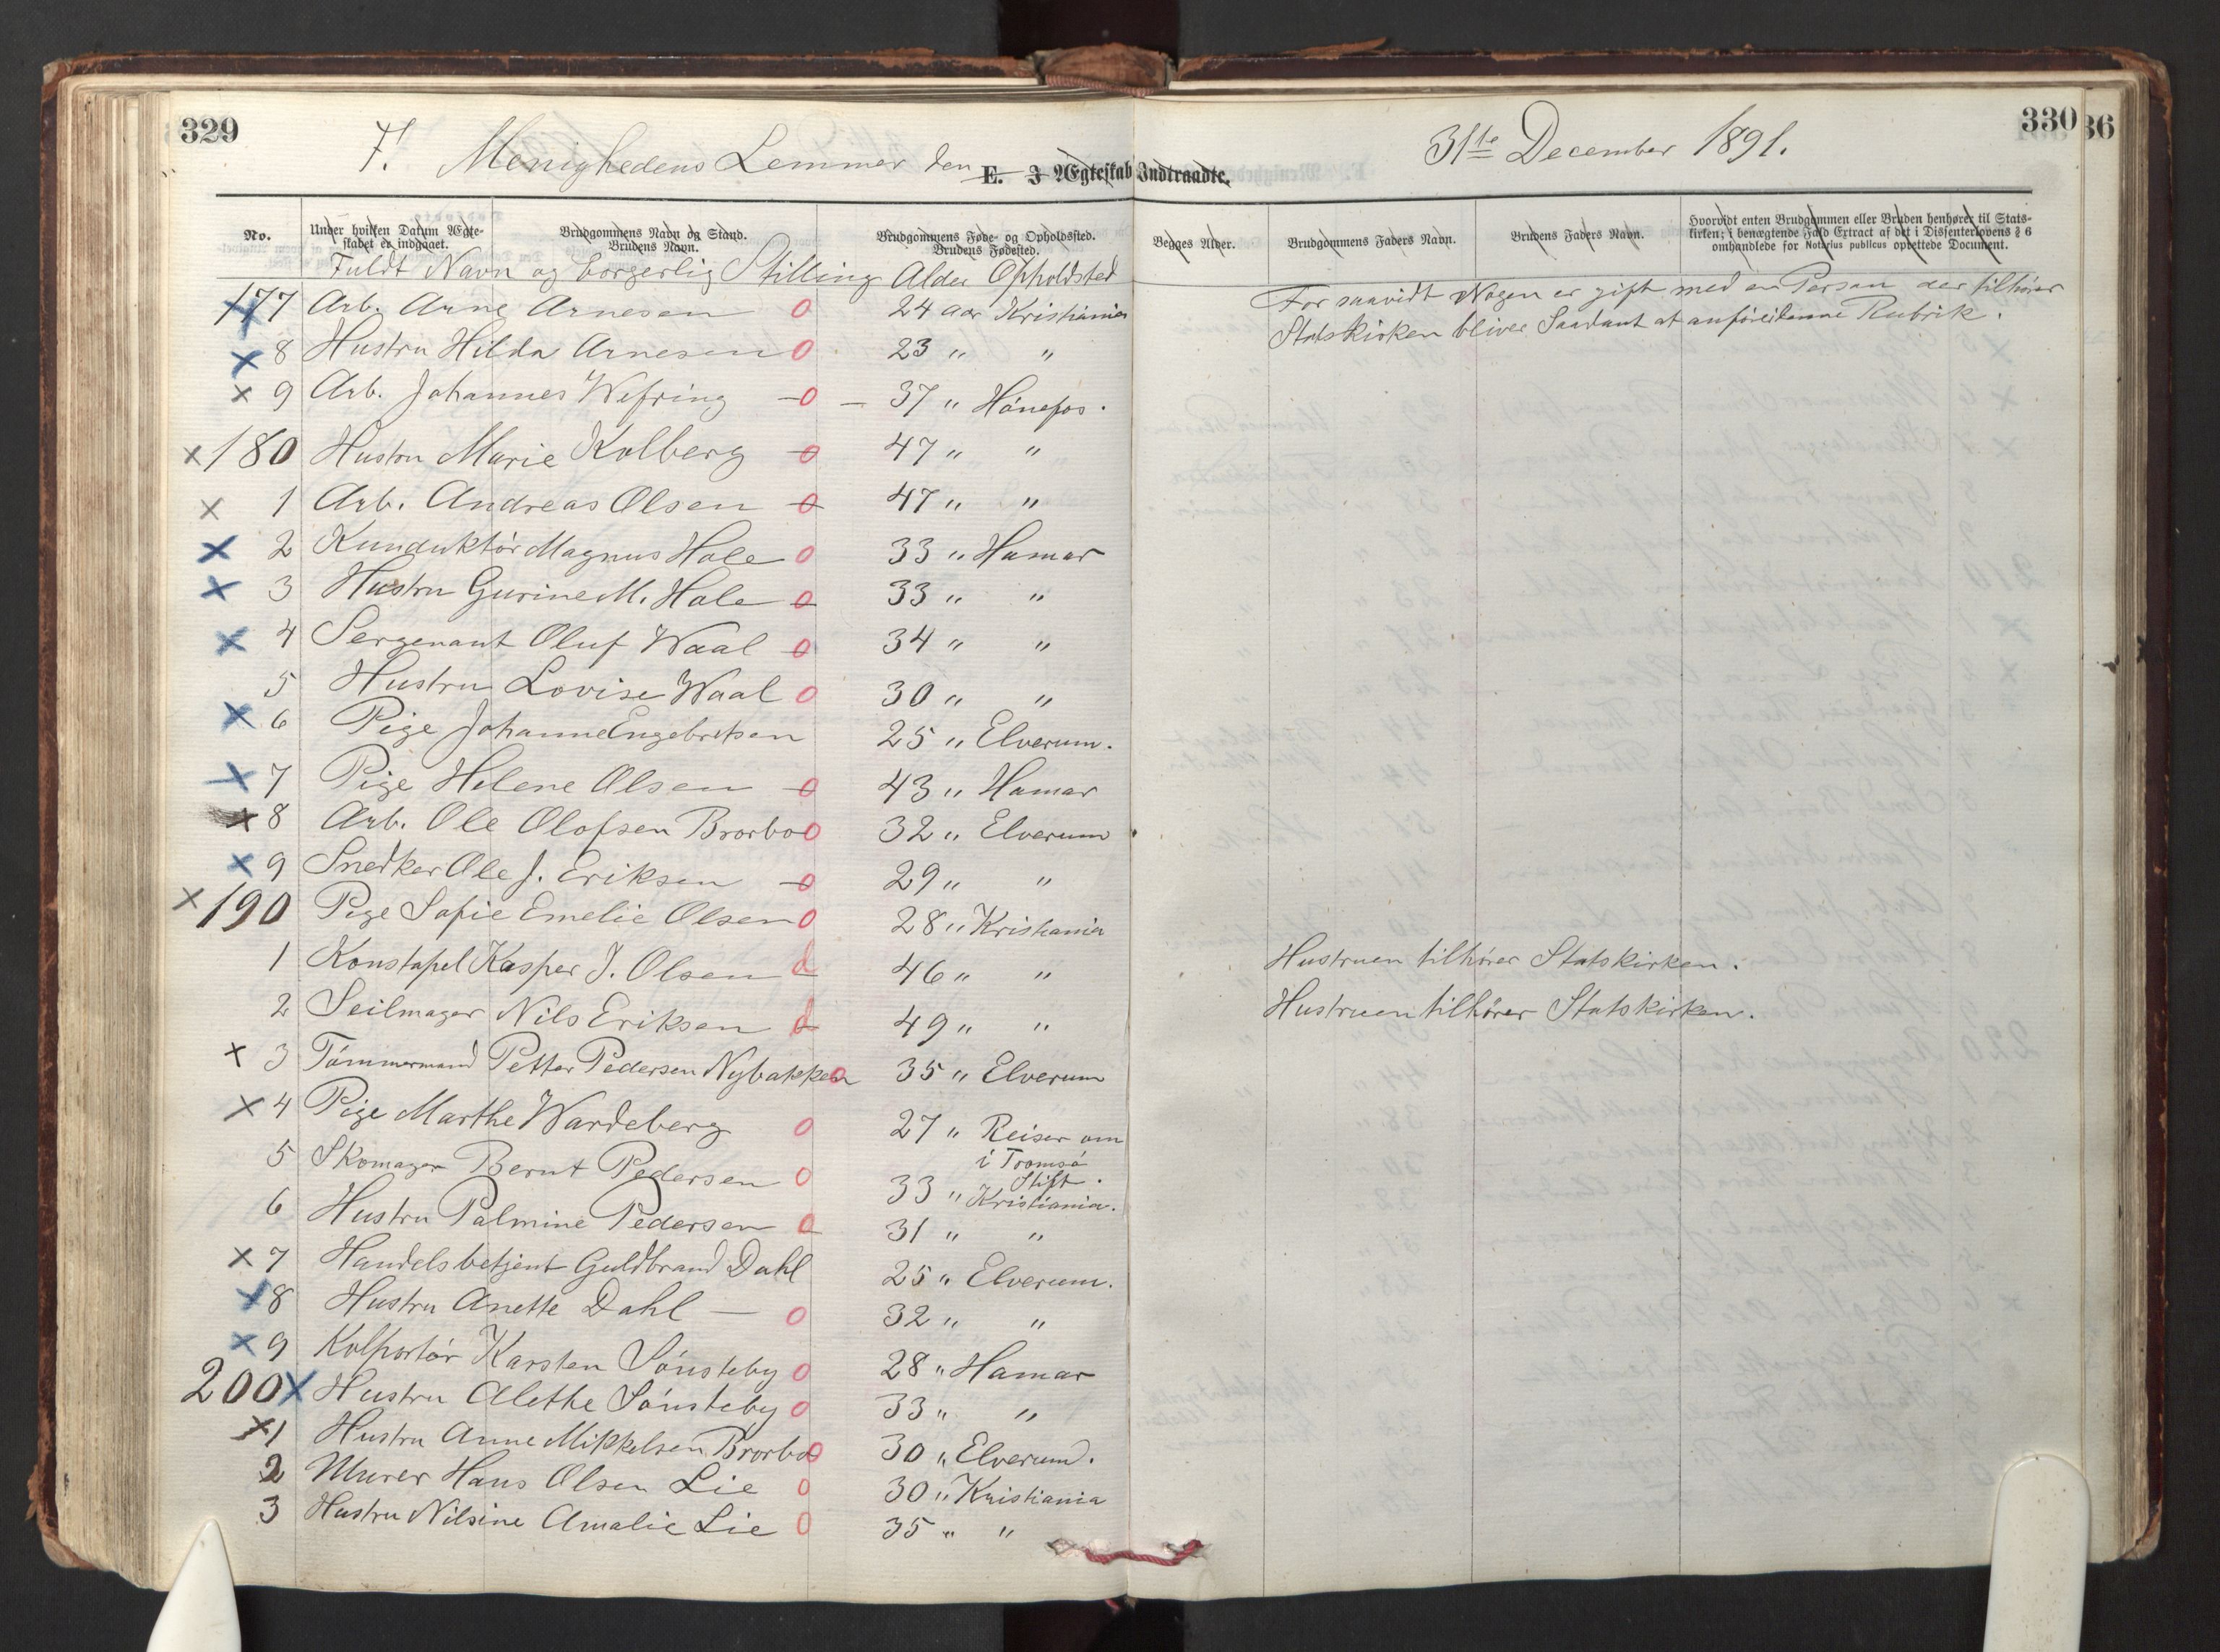 329
F. Menighedens Lemmer den 31te December 1891.
330
36
E. I Ægteskab Indtraadte.
No.
Under hvilken Datum Ægte-
skabet er indgaaet.
Brudgommens Navn og Stand.
Brudens Navn.
Brudgommens Føde- og Opholdssted.
Brudens Fødested.
Begges Alder.
Brudgommens Faders Navn.
Brudens Faders Navn.
Hvorvidt enten Brudgommen eller Bruden henhører til Stats-
kirken; i benægtende Fald Extract af det i Dissenterlovens § 6
omhandlede for Notarius publicus oprettede Document.
Fuldt Navn og borgerlig Stilling Alder Opholdsted
For saavidt Nogen er gift med en Person der tilhører
Statskirken bliver Saadant at anføre i denne Rubrik.
177 Arb. Arne Arnesen 0 24 aar Kristiania
x 8 Hustru Hilda Arnesen 0 23 " "
x 9 Arb. Johannes Wefring - 0 - 37 " Hönefos.
x 180 Hustru Marie Kolberg 0 47 " "
x 1 Arb. Andreas Olsen 0 47 " "
x 2 Kunduktör Magnus Hole 0 33 " Hamar
x 3 Hustru Gurine M. Hole 0 33 " "
x 4 Sergenant Oluf Waal 0 34 " "
5 Hustru Lovise Waal 0 30 " "
x 6 Pige Johanne Engebretsen 25 " Elverum.
x 7 Pige Helene Olsen 0 43 " Hamar
x 8 Arb. Ole Olofsen Brorbo 0 32 " Elverum
x 9 Snedker Ole J. Eriksen 0 29 " "
x 190 Pige Sofie Emelie Olsen 0 28 " Kristiania
1 Konstapel Kasper J. Olsen d 46 " " Hustruen tilhører Statskirken.
2 Seilmager Nils Eriksen d 49 " " Hustruen tilhører Statskirken.
x 3 Tömmermand Petter Pedersen Nybakken 0 35 " Elverum
x 4 Pige Marthe Wardeberg 0 27 " Reiser om
i Tromsö
Stift.
5 Skomager Bernt Pedersen 0 33 " Kristiania.
6 Hustru Palmine Pedersen 0 31 " "
x 7 Handelsbetjent Guldbrand Dahl 25 " Elverum.
x 8 Hustru Anette Dahl - 0 32 " "
x 9 Kolportör Karsten Sönsteby 0 28 " Hamar
200 x Hustru Alethe Sönsteby 0 33 " "
x 1 Hustru Anne Mikkelsen Brorbo 0 30 " Elverum.
2 Murer Hans Olsen Lie 0 30 " Kristiania
3 Hustru Nilsine Amalie Lie 0 35 " "